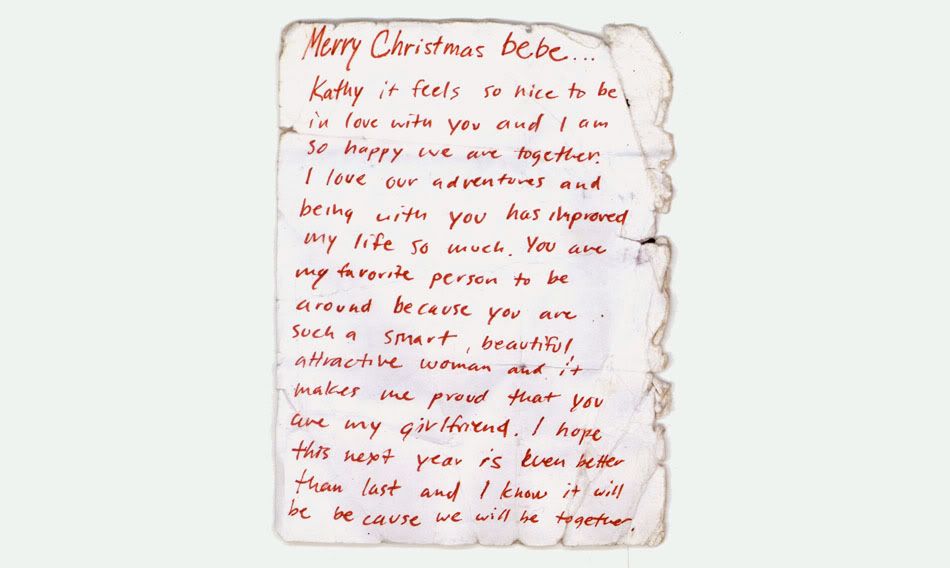 Merry Christmas bebe...
Kathy it feels so nice to be
in love with you and I am
so happy we are together.
I love our adventures and
being with you has improved
my life so much. You are
my favorite person to be
around because you are
such a smart, beautiful,
attractive woman and it
makes me proud that you
are my girlfriend. I hope
this next year is even better
than last and I know it will
be because we will be together.